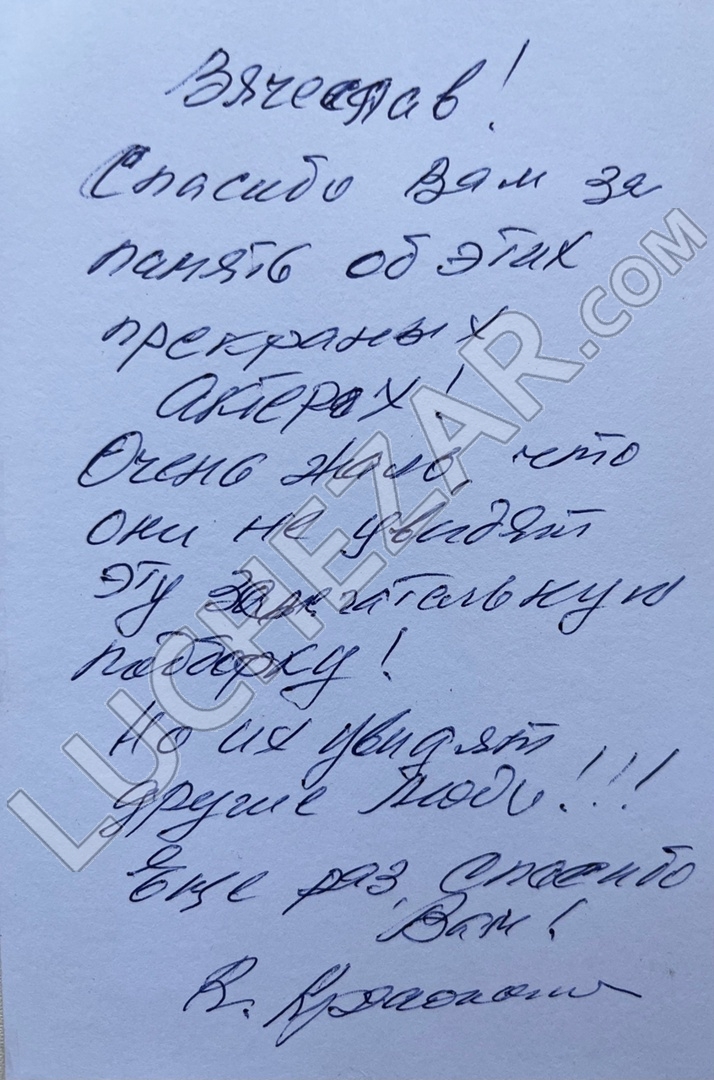 Вячеслав!
Спасибо Вам за
память об этих
прекраных
Актерах!
Очень жаль, что
они не увидят
эту замечательную
подборку!
Но их увидят
другие люди!!!
Еще раз, Спасибо
Вам!
LUCHEZAR.COM